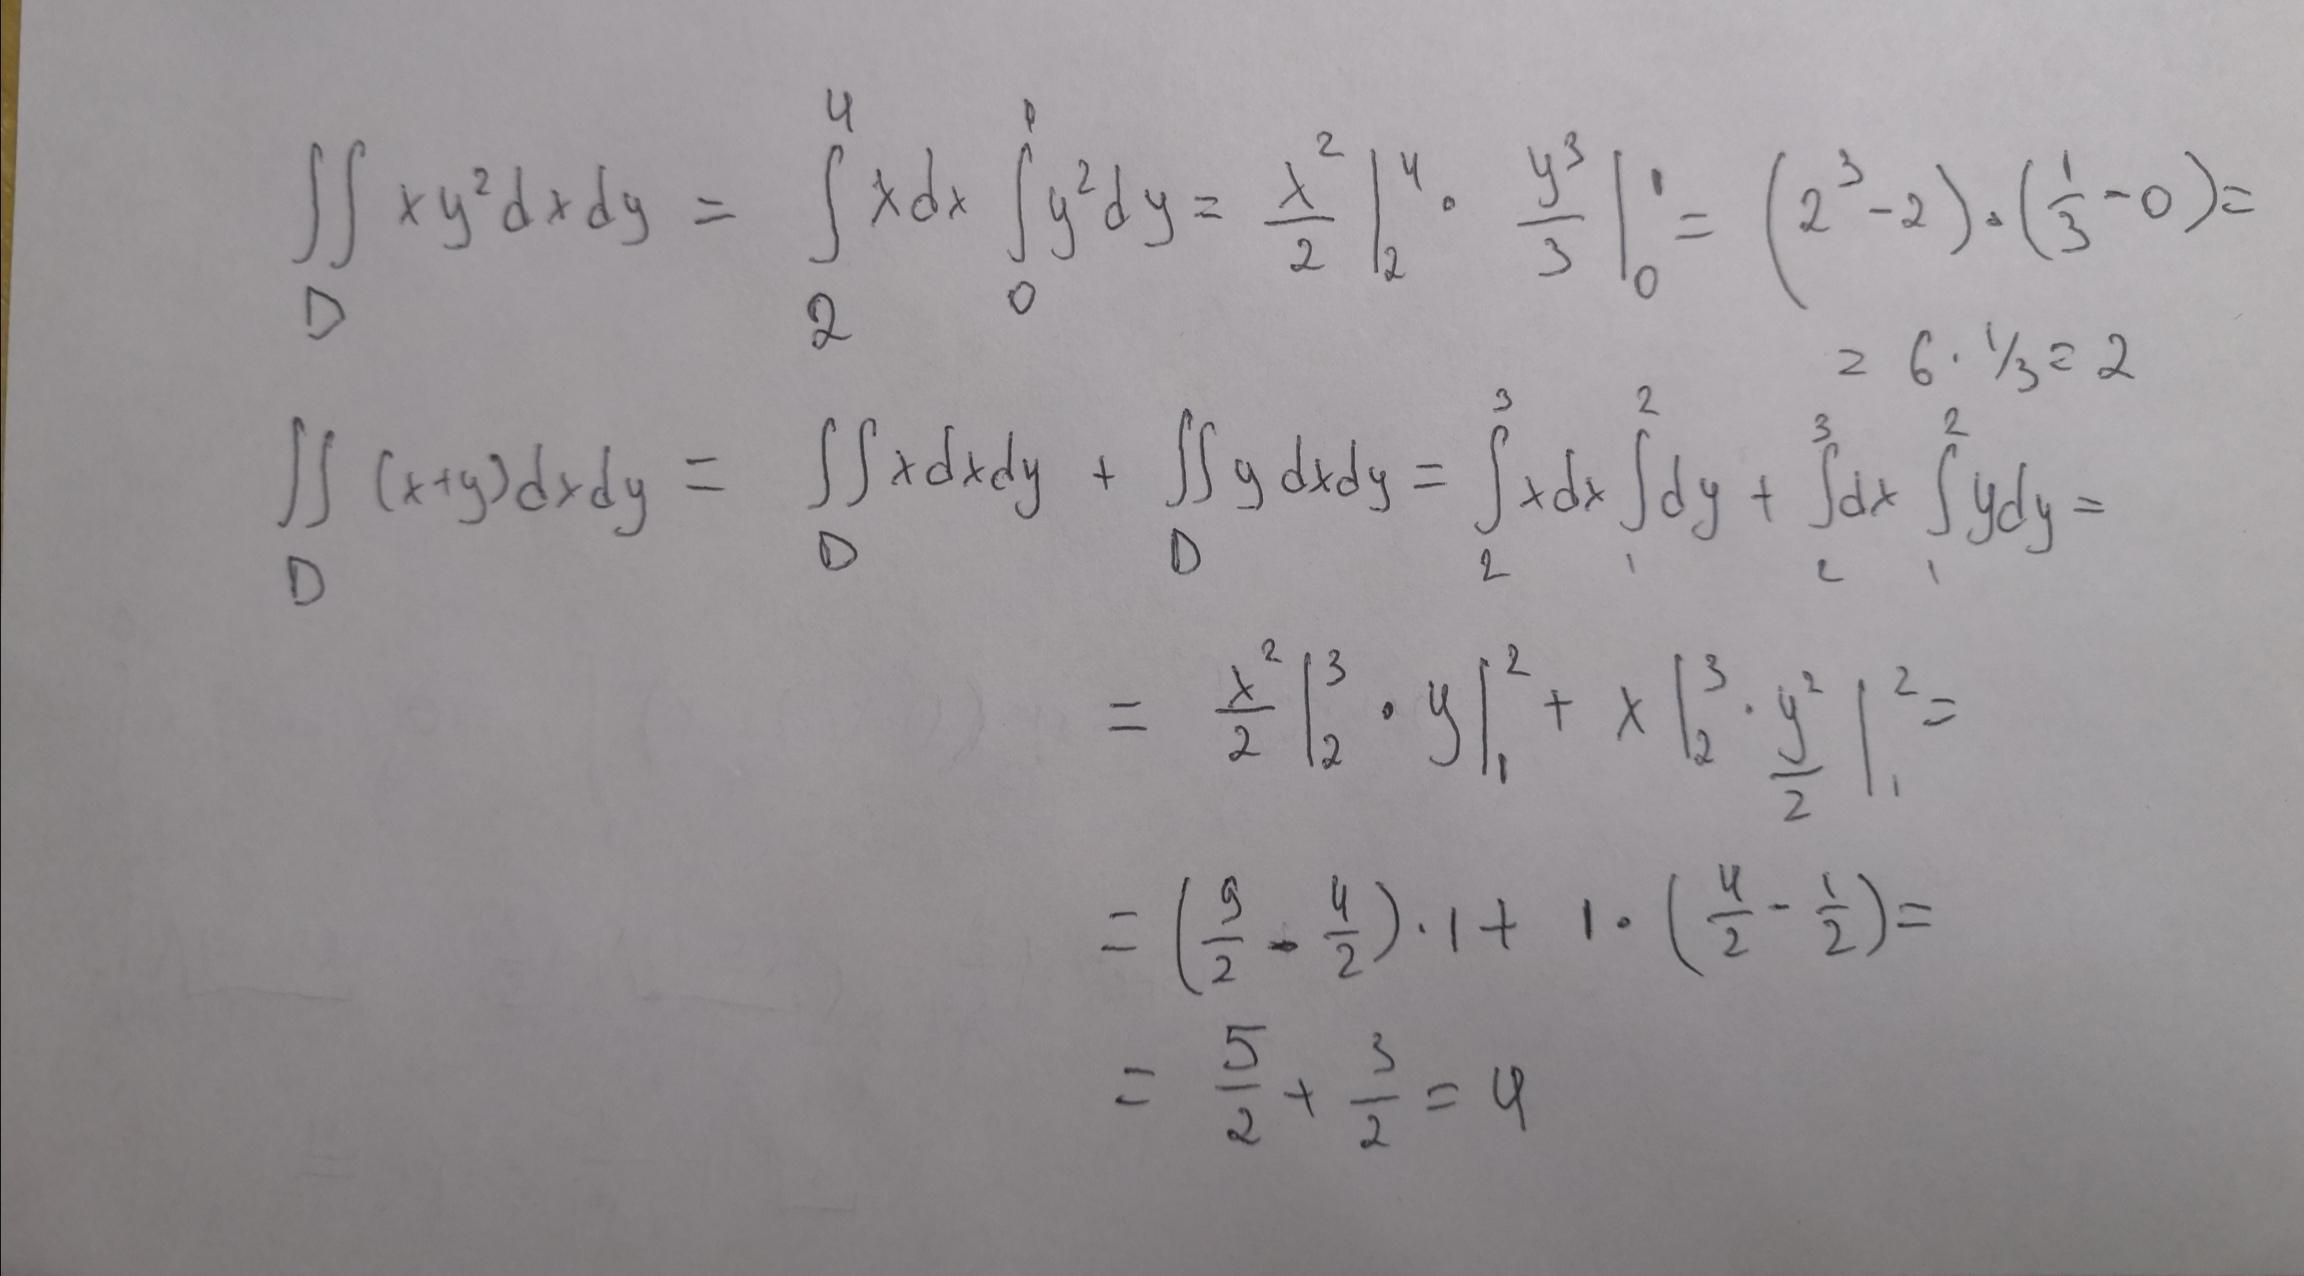 ∬_D xy² dxdy = ∫_2^4 xdx ∫_0^1 y²dy = x²/2 |_2^4 · y³/3 |_0^1 = (2³-2)·(1/3-0)=
= 6·1/3 = 2
∬_D (x+y)dxdy = ∬_D xdxdy + ∬_D ydxdy = ∫_2^3 xdx ∫_1^2 dy + ∫_2^3 dx ∫_1^2 ydy =
= x²/2 |_2^3 · y|_1^2 + x|_2^3 · y²/2 |_1^2 =
= (9/2 - 4/2)·1 + 1·(4/2 - 1/2) =
= 5/2 + 3/2 = 4